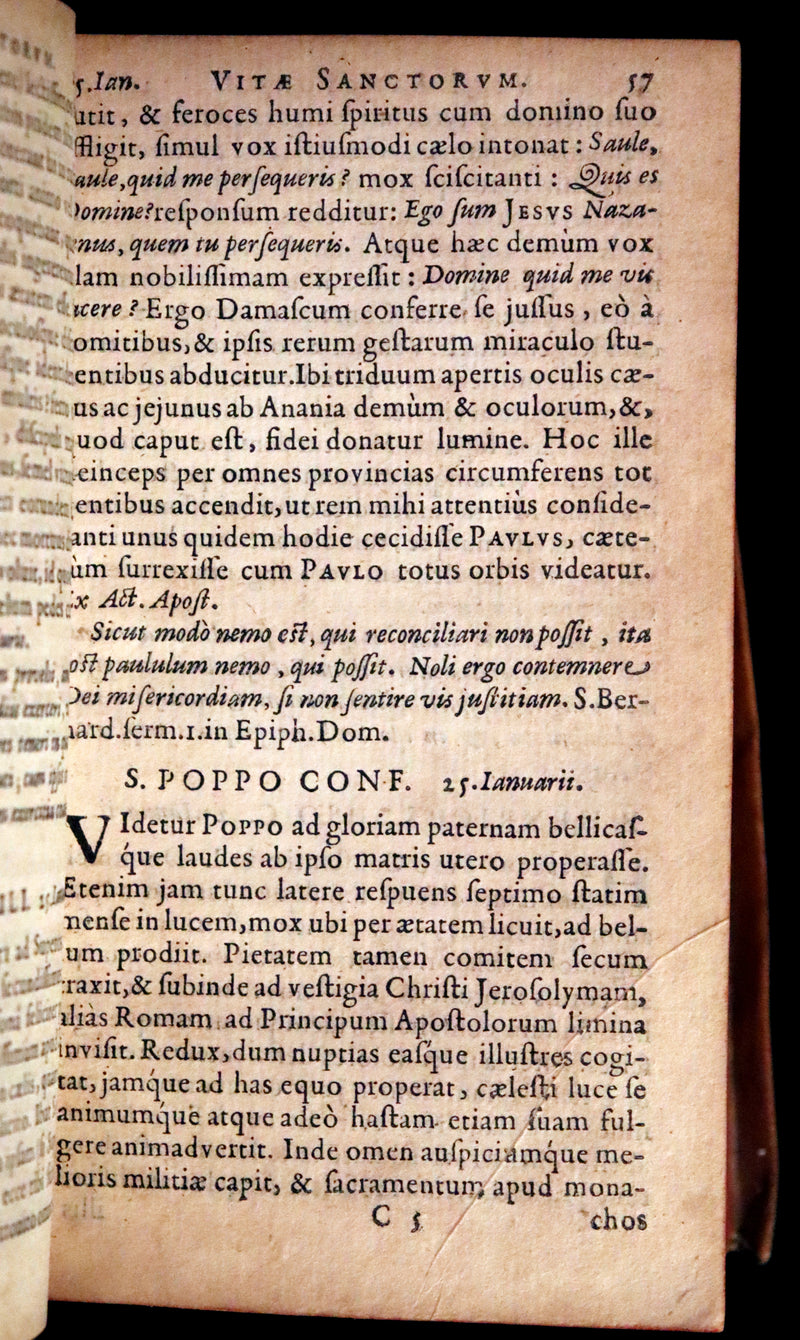 5.Ian. VITÆ SANCTORVM. 57
utit, & feroces humi ſpiritus cum domino ſuo
ffligit, ſimul vox iſtiuſmodi cælo intonat: Saule,
aule, quid me perſequeris? mox ſciſcitanti: Quis es
Domine? reſponſum redditur: Ego ſum JESVS Naza-
nus, quem tu perſequeris. Atque hæc demùm vox
lam nobiliſſimam expreſſit: Domine quid me vis
acere? Ergo Damaſcum conferre ſe juſſus, eò à
omitibus, & ipſis rerum geſtarum miraculo ſtu-
entibus abducitur. Ibi triduum apertis oculis cæ-
us ac jejunus ab Anania demùm & oculorum, &,
uod caput eſt, fidei donatur lumine. Hoc ille
einceps per omnes provincias circumferens tot
entibus accendit, ut rem mihi attentiùs conſide-
anti unus quidem hodie cecidiſſe PAVLVS, cæte-
ùm ſurrexiſſe cum PAVLO totus orbis videatur.
x Act. Apoſt.
Sicut modò nemo eſt, qui reconciliari non poſſit, ita
oſt paululum nemo, qui poſſit. Noli ergo contemnere
Dei miſericordiam, ſi non ſentire vis juſtitiam. S. Ber-
nard. ſerm. 1. in Epiph. Dom.
S. POPPO CONF. 25. Ianuarii.
VIdetur POPPO ad gloriam paternam bellicaſ-
que laudes ab ipſo matris utero properaſſe.
Etenim jam tunc latere reſpuens ſeptimo ſtatim
menſe in lucem, mox ubi per ætatem licuit, ad bel-
um prodiit. Pietatem tamen comitem ſecum
traxit, & ſubinde ad veſtigia Chriſti Jeroſolymam,
aliàs Romam ad Principum Apoſtolorum limina
inviſit. Redux, dum nuptias eaſque illuſtres cogi-
tat, jamq́ue ad has equo properat, cæleſti luce ſe
animumq́ue atque adeò haſtam etiam ſuam ful-
gere animadvertit. Inde omen auſpiciumq́ue me-
lioris militiæ capit, & ſacramentum apud mona-
C 5 chos